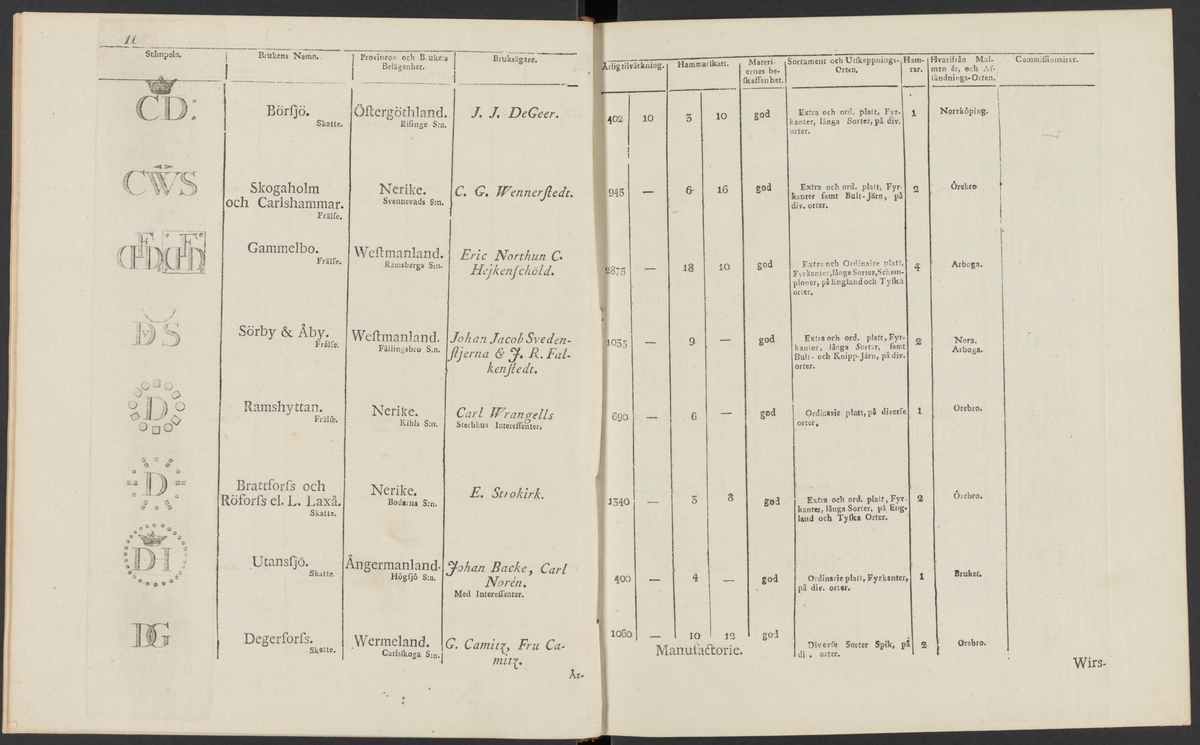 11
Stämpeln.
Brukens Namn.
Provincen och Brukets
Belägenhet.
Bruksägare.
Årlig tilvärkning.
Hammarskatt.
Materi-
ernes be-
skaffenhet.
Sortament och Utskeppnings-
Orten.
Ham-
rar.
Hvarifrån Mal-
men är, och Af-
sändnings-Orten.
Commissionairer.
CD:
Börsjö.
Skatte.
Östergöthland.
Risinge S:n.
J. J. DeGeer.
402 10 3 10 god
Extra och ord. platt, Fyr-
kanter, långa Sorter, på div.
orter.
1
Norrköping.
CWS
Skogaholm
och Carlshammar.
Frälse.
Nerike.
Svennevads S:n.
C. G. Wennerstedt.
945 — 6 16 god
Extra och ord. platt, Fyr-
kanter samt Bult-Järn, på
div. orter.
2
Örebro
Gammelbo.
Frälse.
Westmanland.
Ramsbergs S:n.
Eric Northun C.
Hejkenschöld.
2875 — 18 10 god
Extra och Ordinaire platt,
Fyrkanter, långa Sorter, Scham-
ploner, på England och Tyska
orter.
4
Arboga.
DS
Sörby & Åby.
Frälse.
Westmanland.
Fällingsbro S:n.
Johan Jacob Sveden-
stjerna & J. R. Fal-
kenstedt.
1035 — 9 — god
Extra och ord. platt, Fyr-
kanter, långa Sorter, samt
Bult- och Knipp-Järn, på div.
orter.
2
Nora.
Arboga.
D
Ramshyttan.
Frälse.
Nerike.
Kihls S:n.
Carl Wrangells
Sterbhus Interessenter.
690 — 6 — god
Ordinarie platt, på diverse
orter.
1
Örebro.
D
Brattforss och
Röforss el. L. Laxå.
Skatte.
Nerike.
Bodarna S:n.
E. Strokirk.
1340 — 3 8 god
Extra och ord. platt, Fyr-
kanter, långa Sorter, på Eng-
land och Tyska Orter.
2
Örebro.
DH
Utansjö.
Skatte.
Ångermanland.
Högsjö S:n.
Johan Backe, Carl
Norén.
Med Interessenter.
400 — 4 — god
Ordinarie platt, Fyrkanter,
på div. orter.
1
Bruket.
DG
Degerforss.
Skatte.
Wermeland.
Carlskoga S:n.
G. Camitz, Fru Ca-
mitz.
1060 — 10 12 god
Manufactorie.
Diverse Sorter Spik, på
div. orter.
2
Örebro.
År-
Wirs-